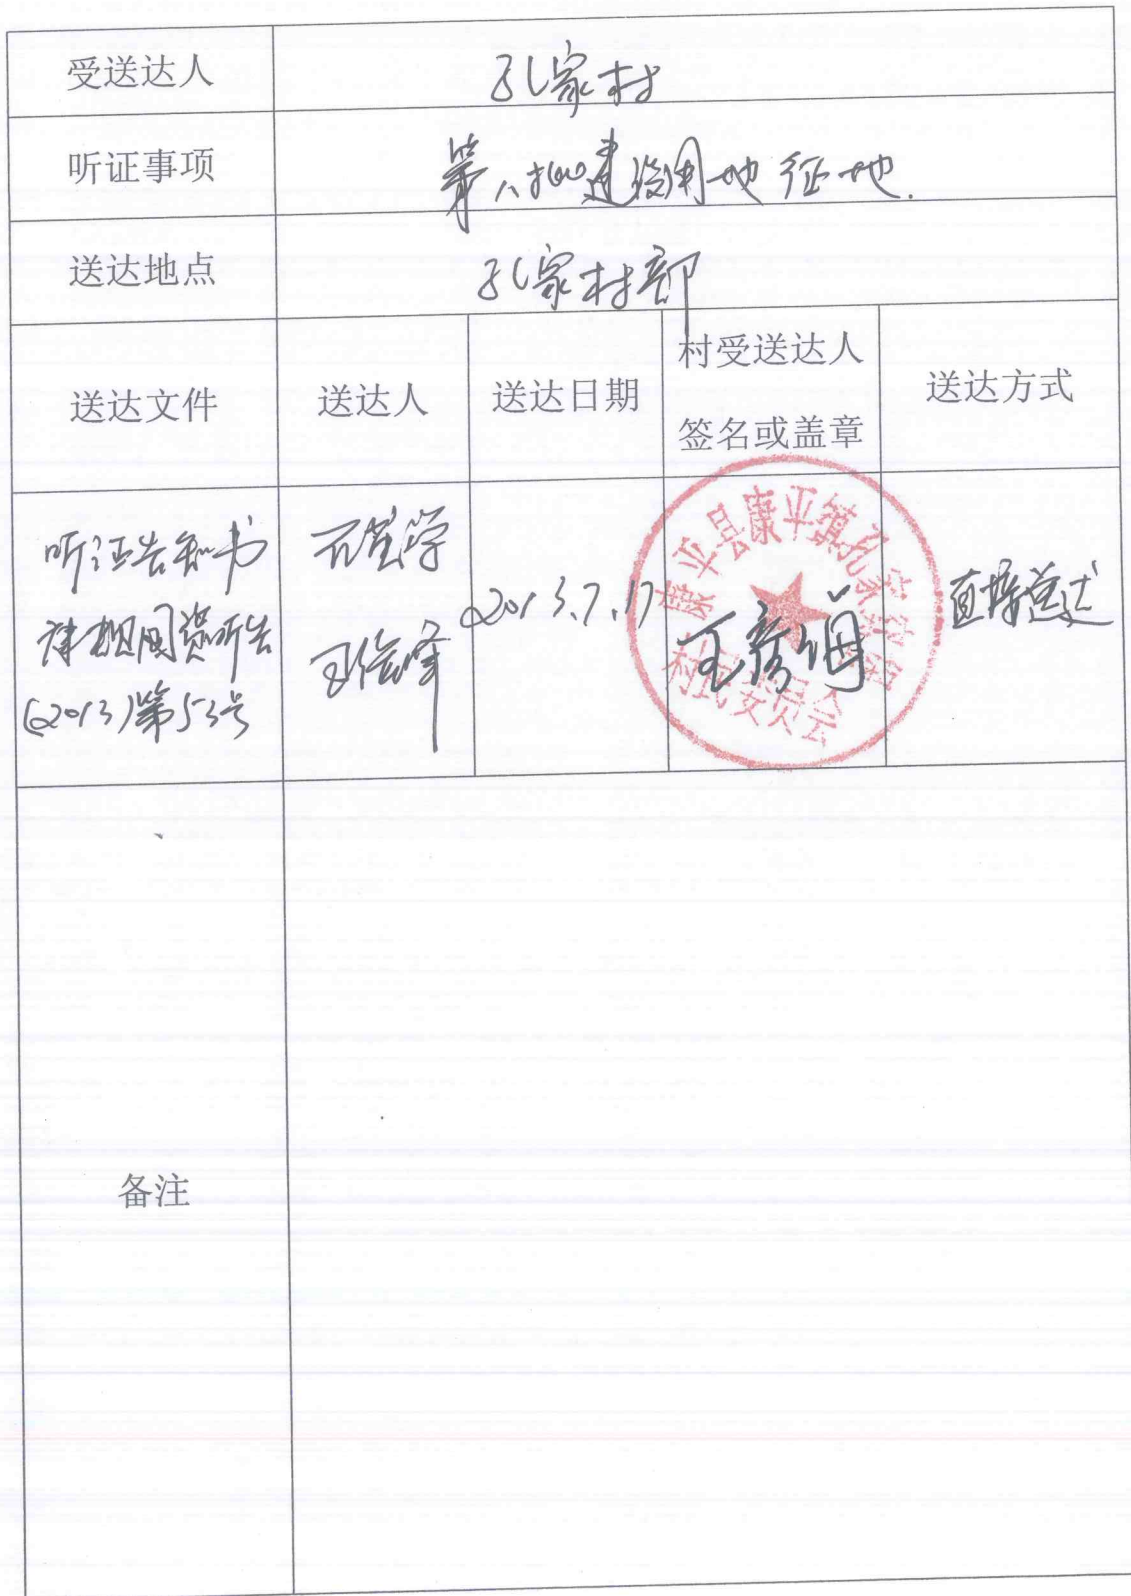 受送达人
孔家村
听证事项
第八批建设用地征地.
送达地点
孔家村部
送达文件
送达人
送达日期
村受送达人
签名或盖章
送达方式
听证告知书
国资听告
(2013)第53号
2013.7.17
康平县康平镇孔家窝堡
村民委员会
直接送达
备注